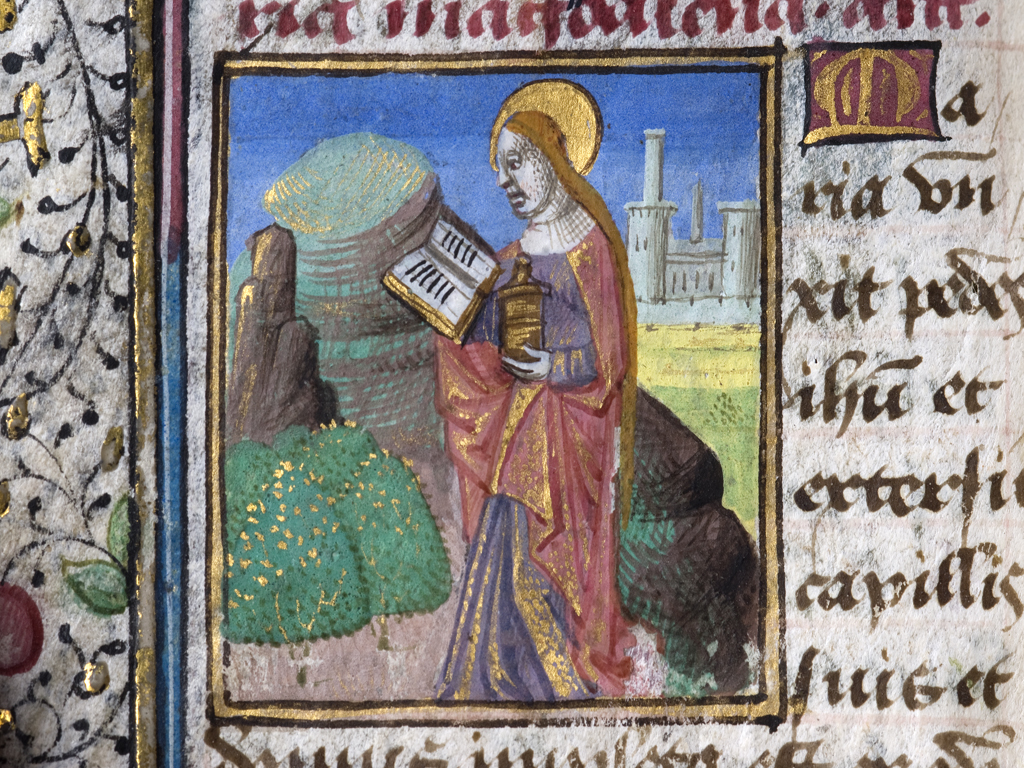 ria magdalena. añ.
Ma
ria vn
xit pedes
ihū et
extersit
capillis
suis et
domus